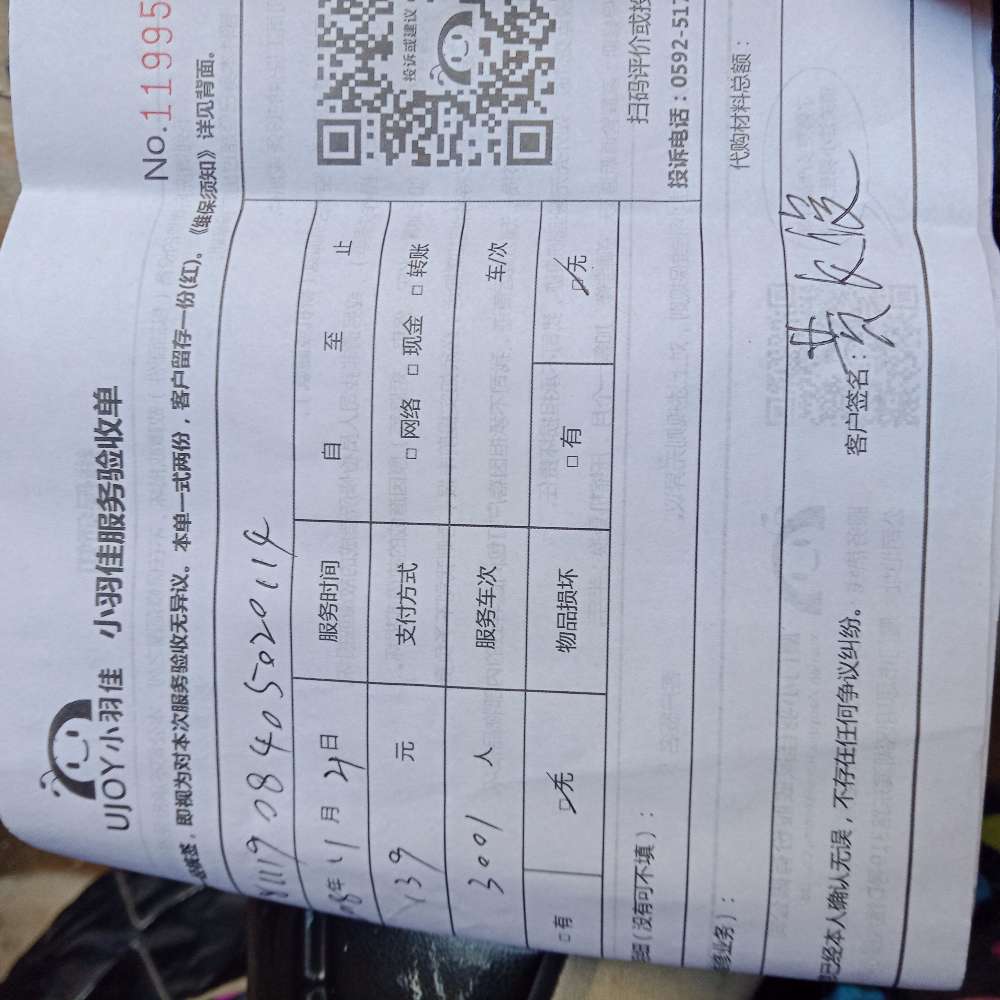 UJOY小羽佳 小羽佳服务验收单
No.11995
即视为对本次服务验收无异议。本单一式两份，客户留存一份(红)。《维保须知》详见背面。
111908405020114
年11月21日 服务时间 自 至 止
投诉或建议
139 元 支付方式 □网络 □现金 □转账
3001 人 服务车次 车/次
□有 □无 物品损坏 □有 □无
扫码评价或投
（没有可不填）：
投诉电话：0592-517
业务）：
代购材料总额：
已经本人确认无误，不存在任何争议纠纷。 客户签名：黄